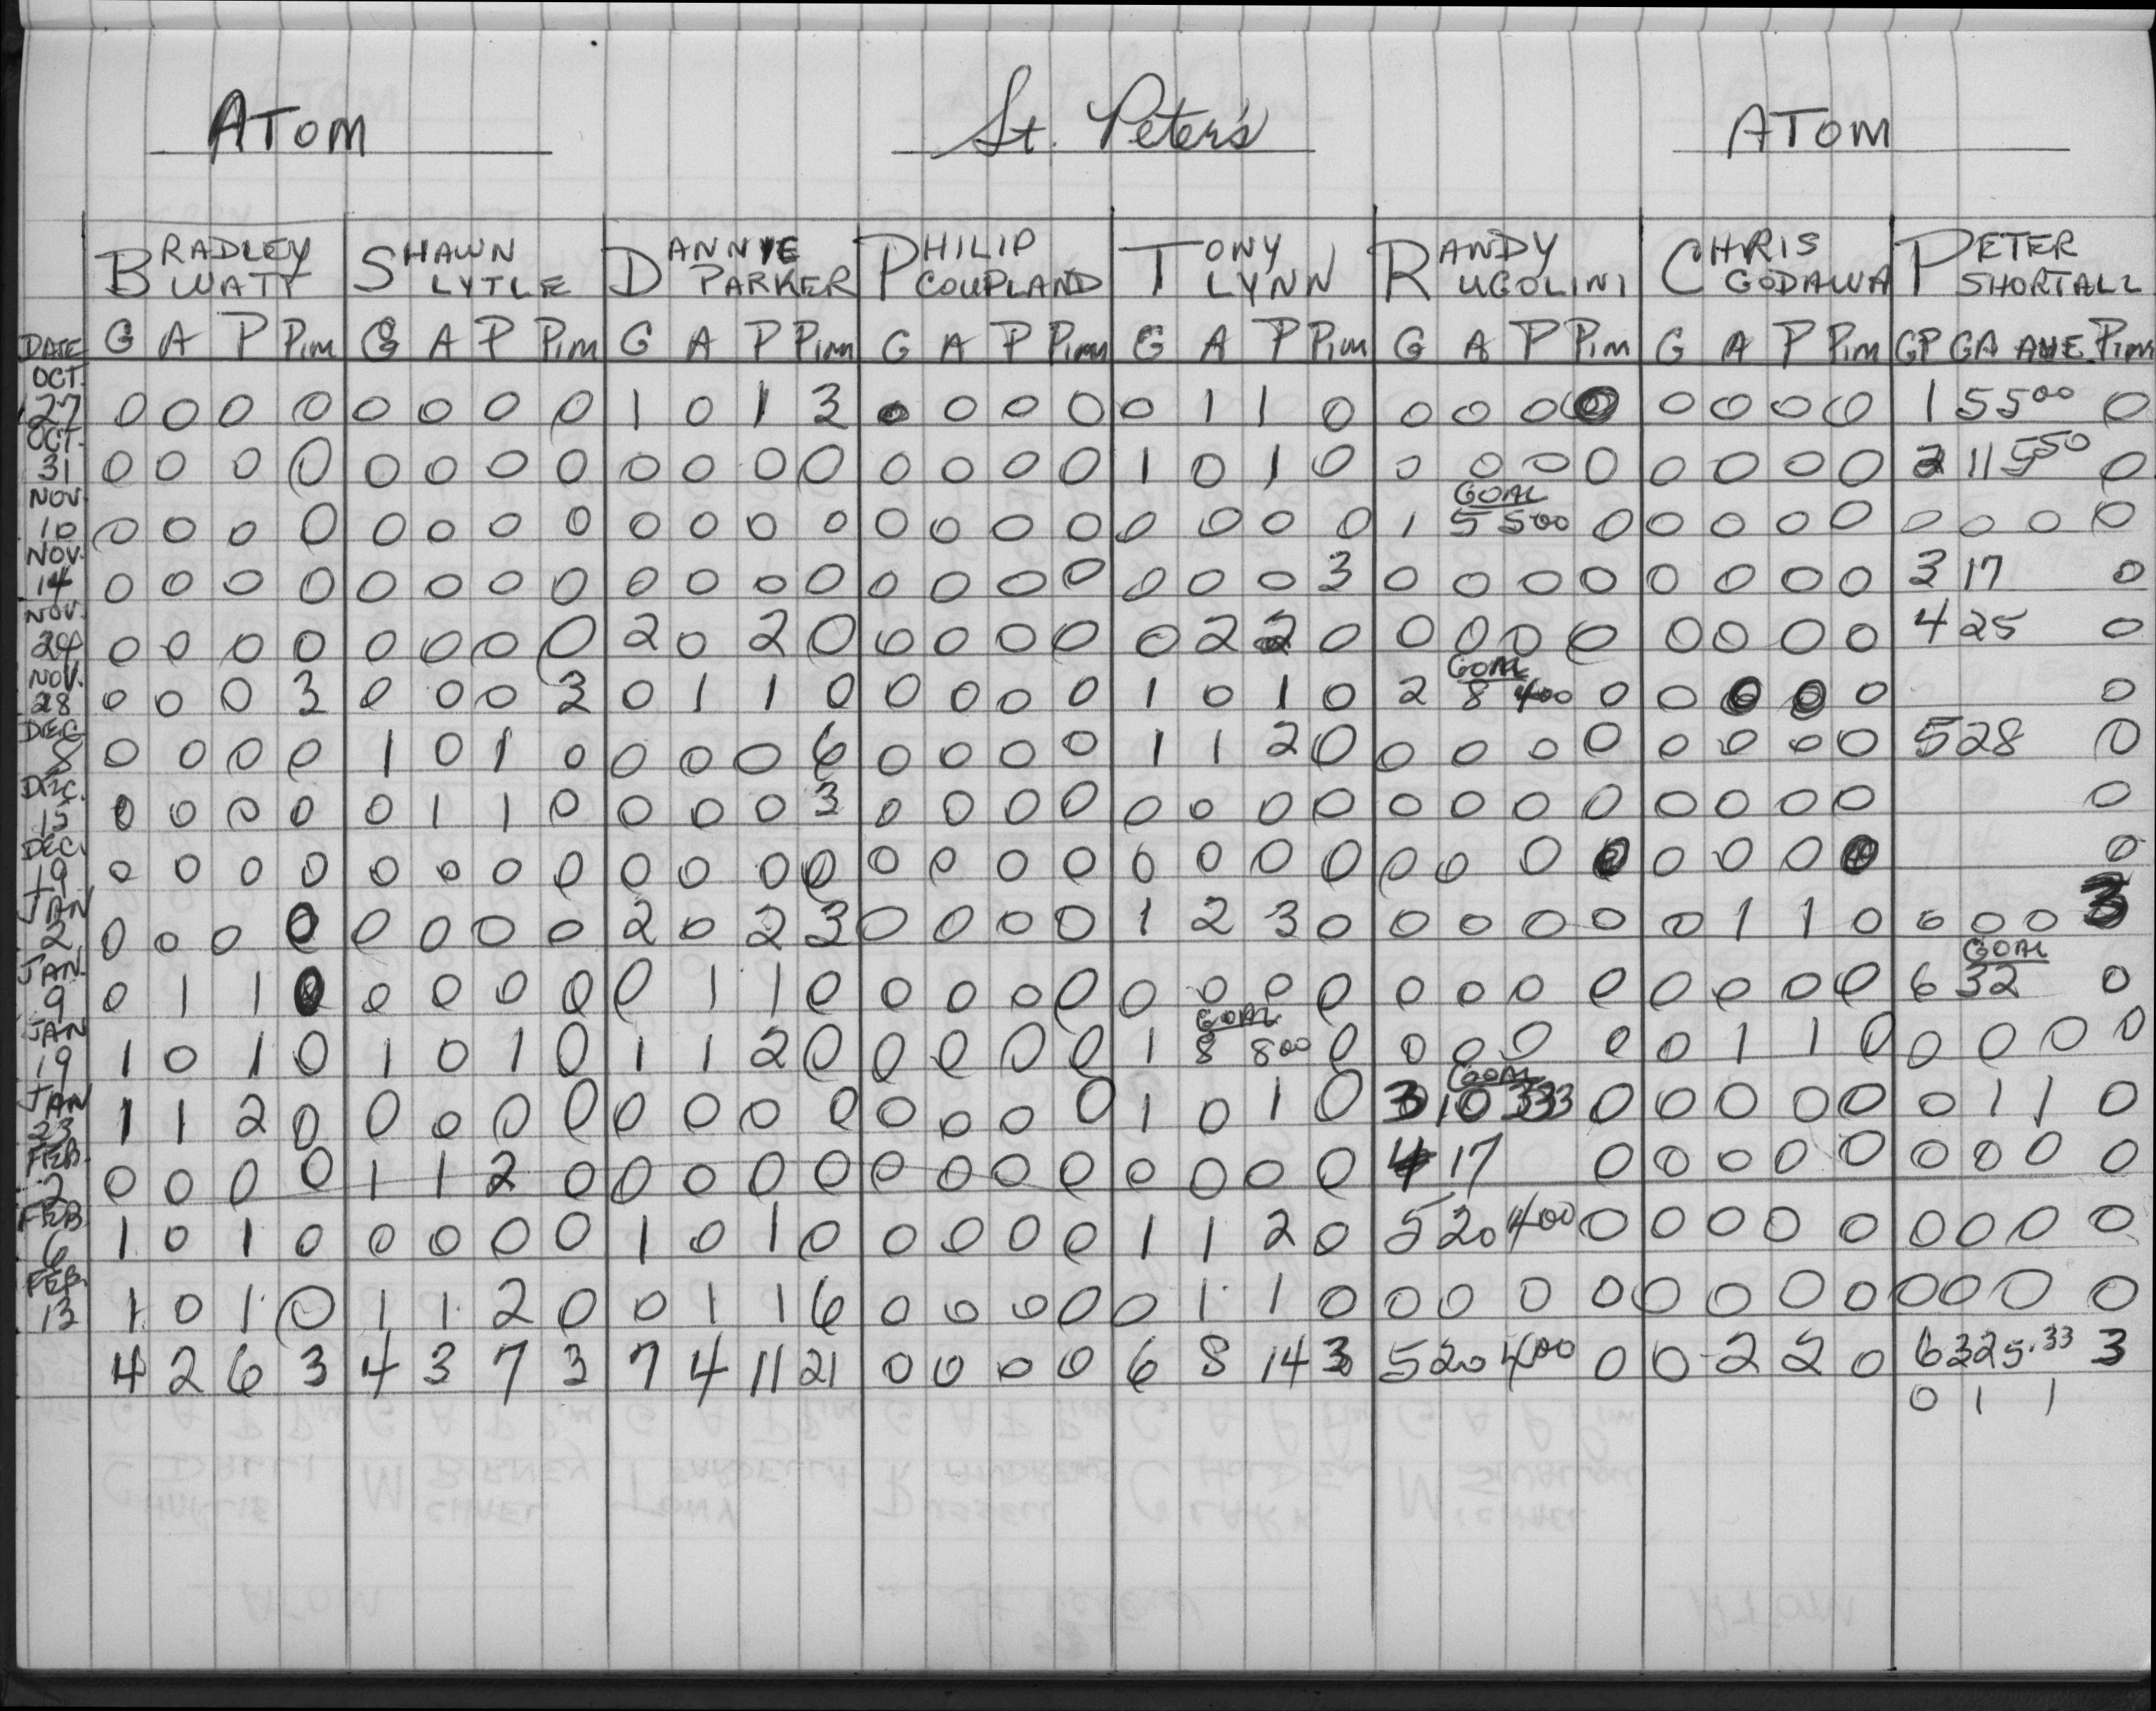 ATOM St. Peter's ATOM
BRADLEY WATT SHAWN LYTLE DANNIE PARKER PHILIP COUPLAND TONY LYNN RANDY UGOLINI CHRIS GODAWA PETER SHORTALL
DATE G A P Pim G A P Pim G A P Pim G A P Pim G A P Pim G A P Pim G A P Pim GP GA AVE. Pim
OCT. 27 0 0 0 0 0 0 0 0 1 0 1 3 0 0 0 0 0 1 1 0 0 0 0 0 0 0 0 0 1 5 5 00 0
OCT. 31 0 0 0 0 0 0 0 0 0 0 0 0 0 0 0 0 1 0 1 0 0 0 0 0 0 0 0 0 2 11 5 50 0
GOAL
NOV. 10 0 0 0 0 0 0 0 0 0 0 0 0 0 0 0 0 0 0 0 0 1 5 5 00 0 0 0 0 0 0 0 0 0
NOV. 14 0 0 0 0 0 0 0 0 0 0 0 0 0 0 0 0 0 0 0 3 0 0 0 0 0 0 0 0 3 17 0
NOV. 24 0 0 0 0 0 0 0 0 2 0 2 0 0 0 0 0 0 2 2 0 0 0 0 0 0 0 0 0 4 25 0
GOAL
NOV. 28 0 0 0 3 0 0 0 3 0 1 1 0 0 0 0 0 1 0 1 0 2 8 4 00 0 0 0 0 0 0
DEC 8 0 0 0 0 1 0 1 0 0 0 0 6 0 0 0 0 1 1 2 0 0 0 0 0 0 0 0 0 5 28 0
DEC. 15 0 0 0 0 0 1 1 0 0 0 0 3 0 0 0 0 0 0 0 0 0 0 0 0 0 0 0 0 0
DEC. 19 0 0 0 0 0 0 0 0 0 0 0 0 0 0 0 0 0 0 0 0 0 0 0 0 0 0 0 0 0
JAN 2 0 0 0 0 0 0 0 0 2 0 2 3 0 0 0 0 1 2 3 0 0 0 0 0 0 1 1 0 0 0 0 3
GOAL
JAN. 9 0 1 1 0 0 0 0 0 0 1 1 0 0 0 0 0 0 0 0 0 0 0 0 0 0 0 0 0 6 32 0
GOAL
JAN 19 1 0 1 0 1 0 1 0 1 1 2 0 0 0 0 0 1 8 8 00 0 0 0 0 0 0 1 1 0 0 0 0 0
GOAL
JAN 23 1 1 2 0 0 0 0 0 0 0 0 0 0 0 0 0 1 0 1 0 3 10 333 0 0 0 0 0 0 1 1 0
FEB. 2 0 0 0 0 1 1 2 0 0 0 0 0 0 0 0 0 0 0 0 0 4 17 0 0 0 0 0 0 0 0 0
FEB 6 1 0 1 0 0 0 0 0 1 0 1 0 0 0 0 0 1 1 2 0 5 20 4 00 0 0 0 0 0 0 0 0 0
FEB. 13 1 0 1 0 1 1 2 0 0 1 1 6 0 0 0 0 0 1 1 0 0 0 0 0 0 0 0 0 0 0 0 0
4 2 6 3 4 3 7 3 7 4 11 21 0 0 0 0 6 8 14 3 5 20 4 00 0 0 2 2 0 6 32 5.33 3
0 1 1